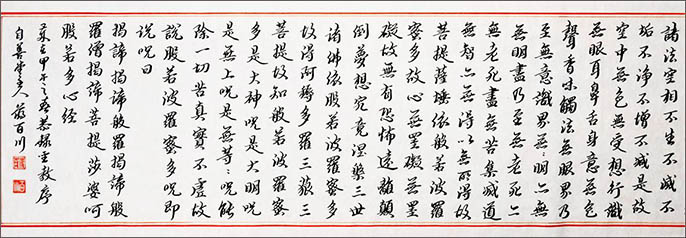 諸法空相不生不滅不
垢不淨不增不減是故
空中無色無受想行識
無眼耳鼻舌身意無色
聲香味觸法無眼界乃
至無意識界無無明亦無
無明盡乃至無老死亦
無老死盡無苦集滅道
無智亦無得以無所得故
菩提薩埵依般若波羅
蜜多故心無罣礙無罣
礙故無有恐怖遠離顛
倒夢想究竟涅槃三世
諸佛依般若波羅蜜多
故得阿耨多羅三藐三
菩提故知般若波羅蜜
多是大神呪是大明呪
是無上呪是無等等呪能
除一切苦真實不虛故
說般若波羅蜜多呪即
說呪曰
揭諦揭諦般羅揭諦般
羅僧揭諦菩提莎婆呵
般若多心經
百川